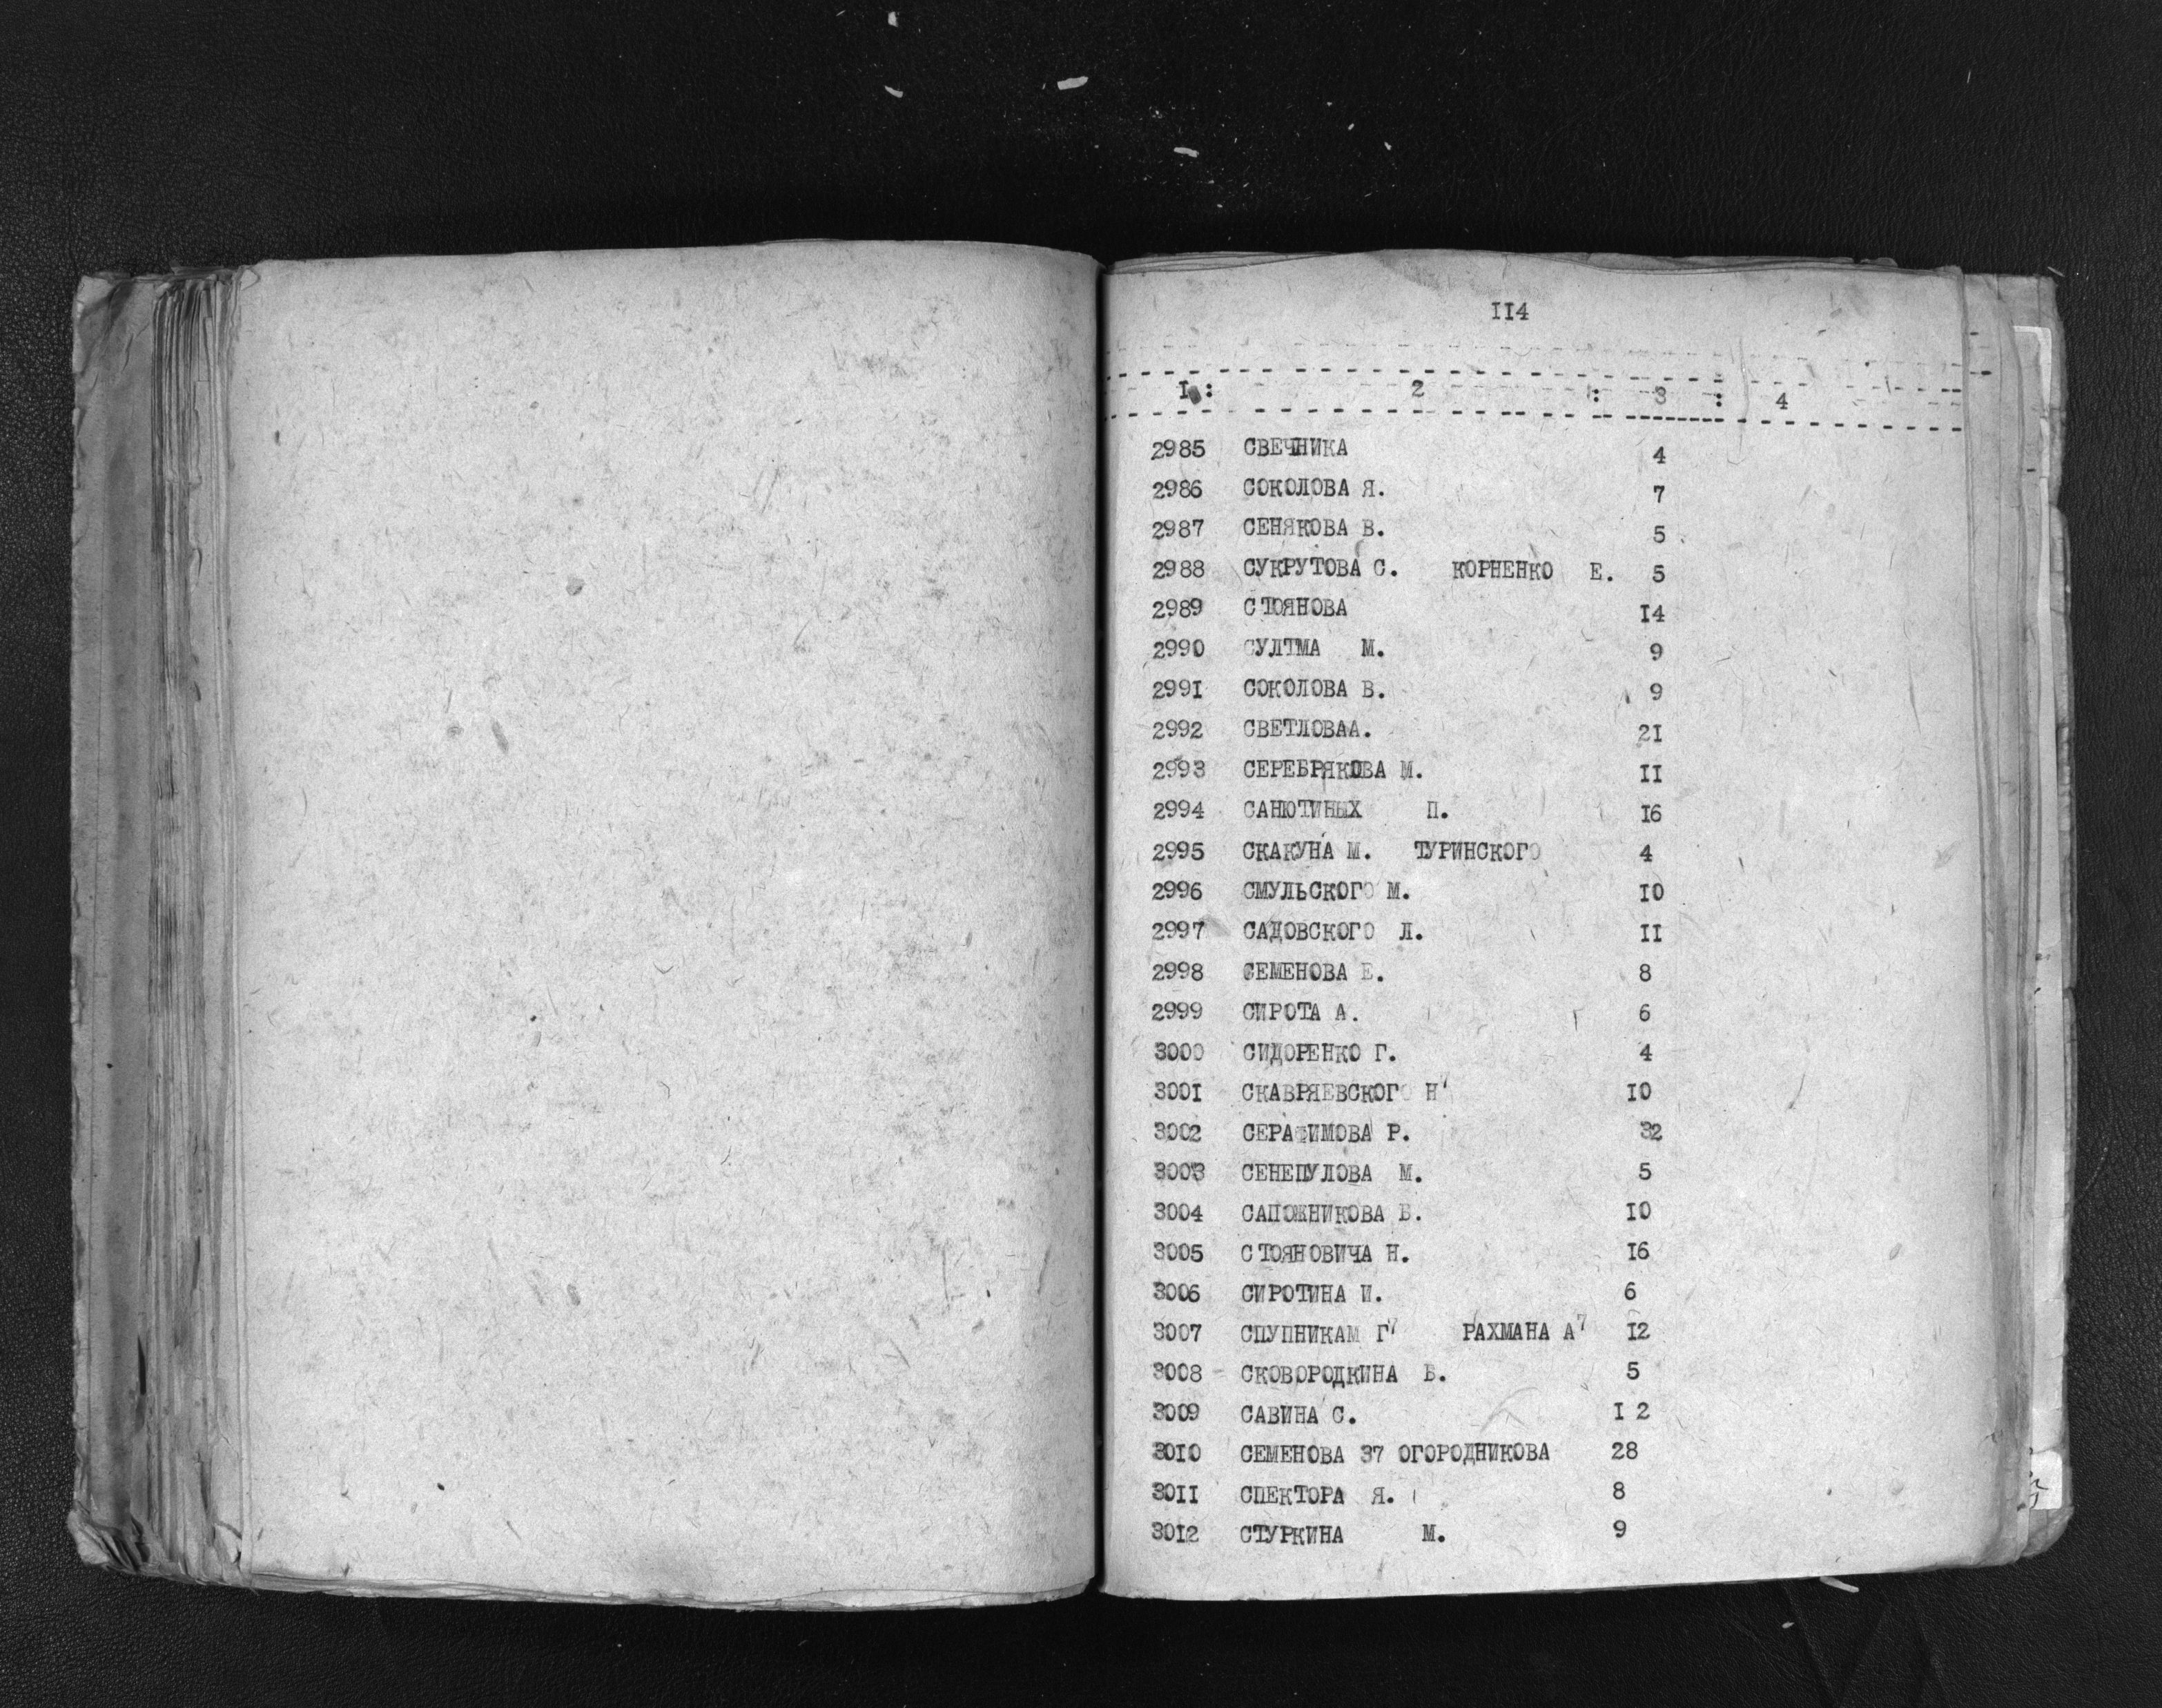 114
1 : 2 : 3 : 4
2985 СВЕЧНИКА 4
2986 СОКОЛОВА Я. 7
2987 СЕНЯКОВА В. 5
2988 СУКРУТОВА С. КОРНЕНКО Е. 5
2989 СТОЯНОВА 14
2990 СУЛТМА М. 9
2991 СОКОЛОВА В. 9
2992 СВЕТЛОВАА. 21
2993 СЕРЕБРЯКОВА М. 11
2994 САНЮТИНЫХ П. 16
2995 СКАКУНА М. ТУРИНСКОГО 4
2996 СМУЛЬСКОГО М. 10
2997 САДОВСКОГО Л. 11
2998 СЕМЕНОВА Е. 8
2999 СИРОТА А. 6
3000 СИДОРЕНКО Г. 4
3001 СКАВРЯЕВСКОГО Н7 10
3002 СЕРАФИМОВА Р. 32
3003 СЕНЕПУЛОВА М. 5
3004 САПОЖНИКОВА Б. 10
3005 СТОЯНОВИЧА Н. 16
3006 СИРОТИНА И. 6
3007 СПУПНИКАМ Г7 РАХМАНА А7 12
3008 СКОВОРОДКИНА Б. 5
3009 САВИНА С. 1 2
3010 СЕМЕНОВА 37 ОГОРОДНИКОВА 28
3011 СПЕКТОРА Я. 8
3012 СТУРКИНА М. 9